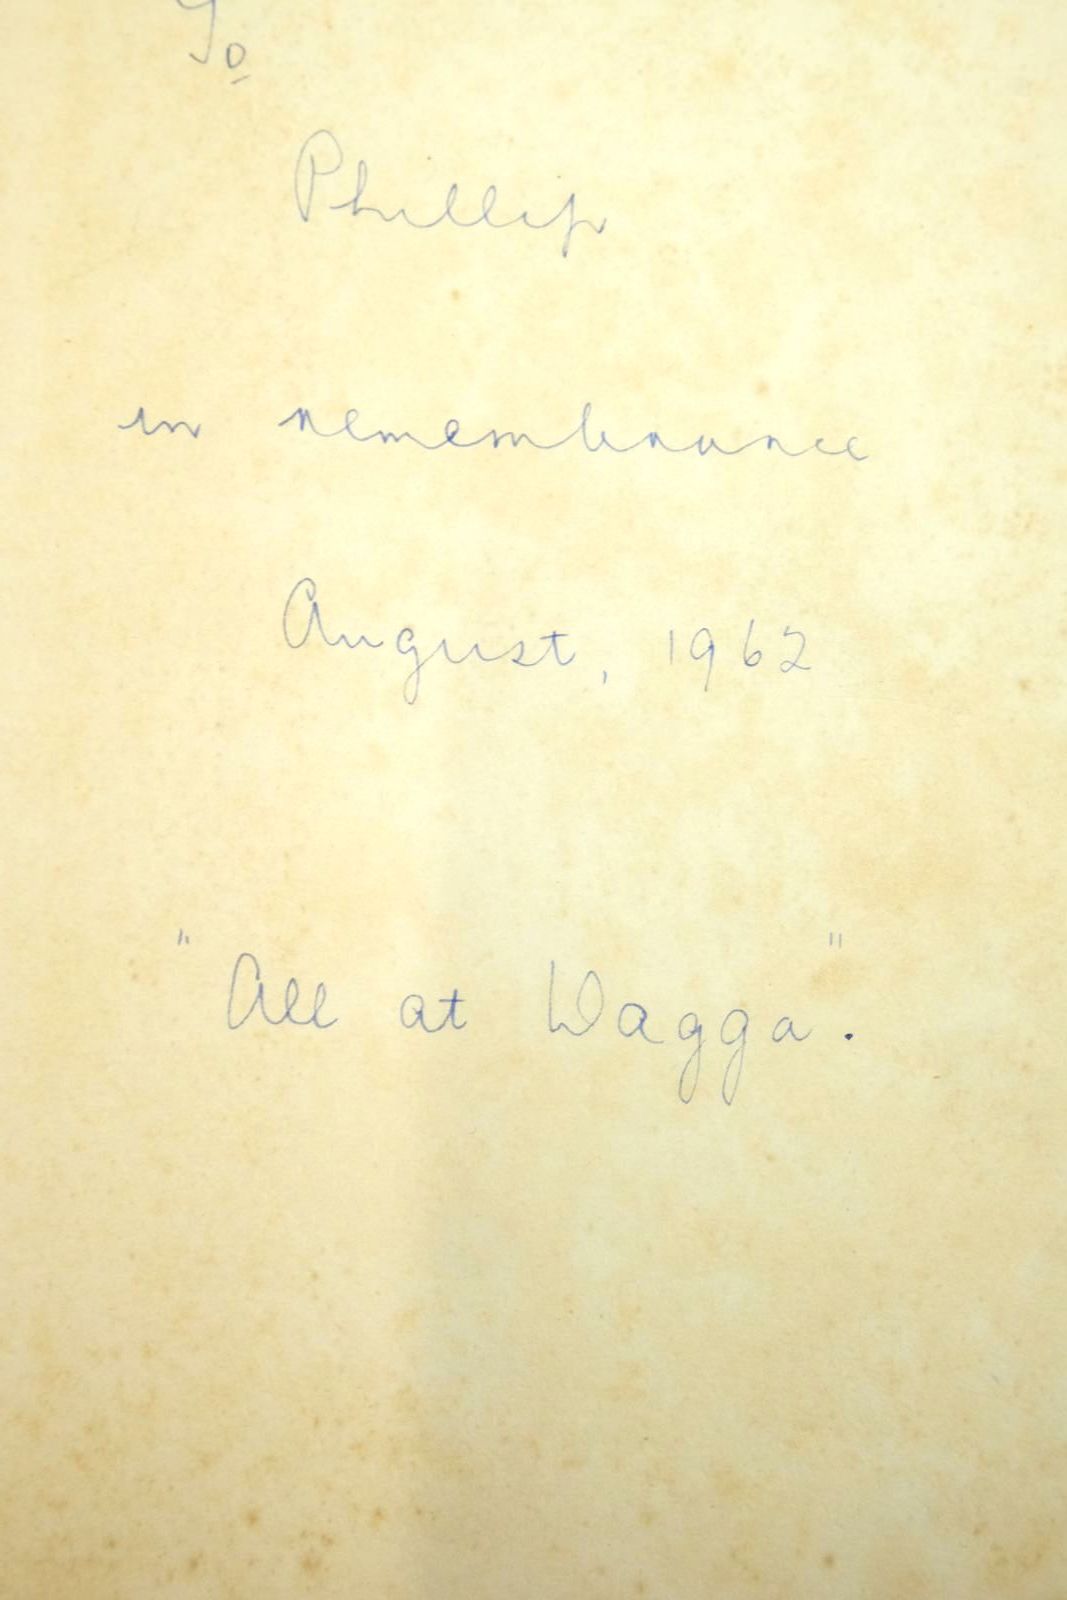 To
Phillip
in remembrance
August, 1962
"All at Wagga".